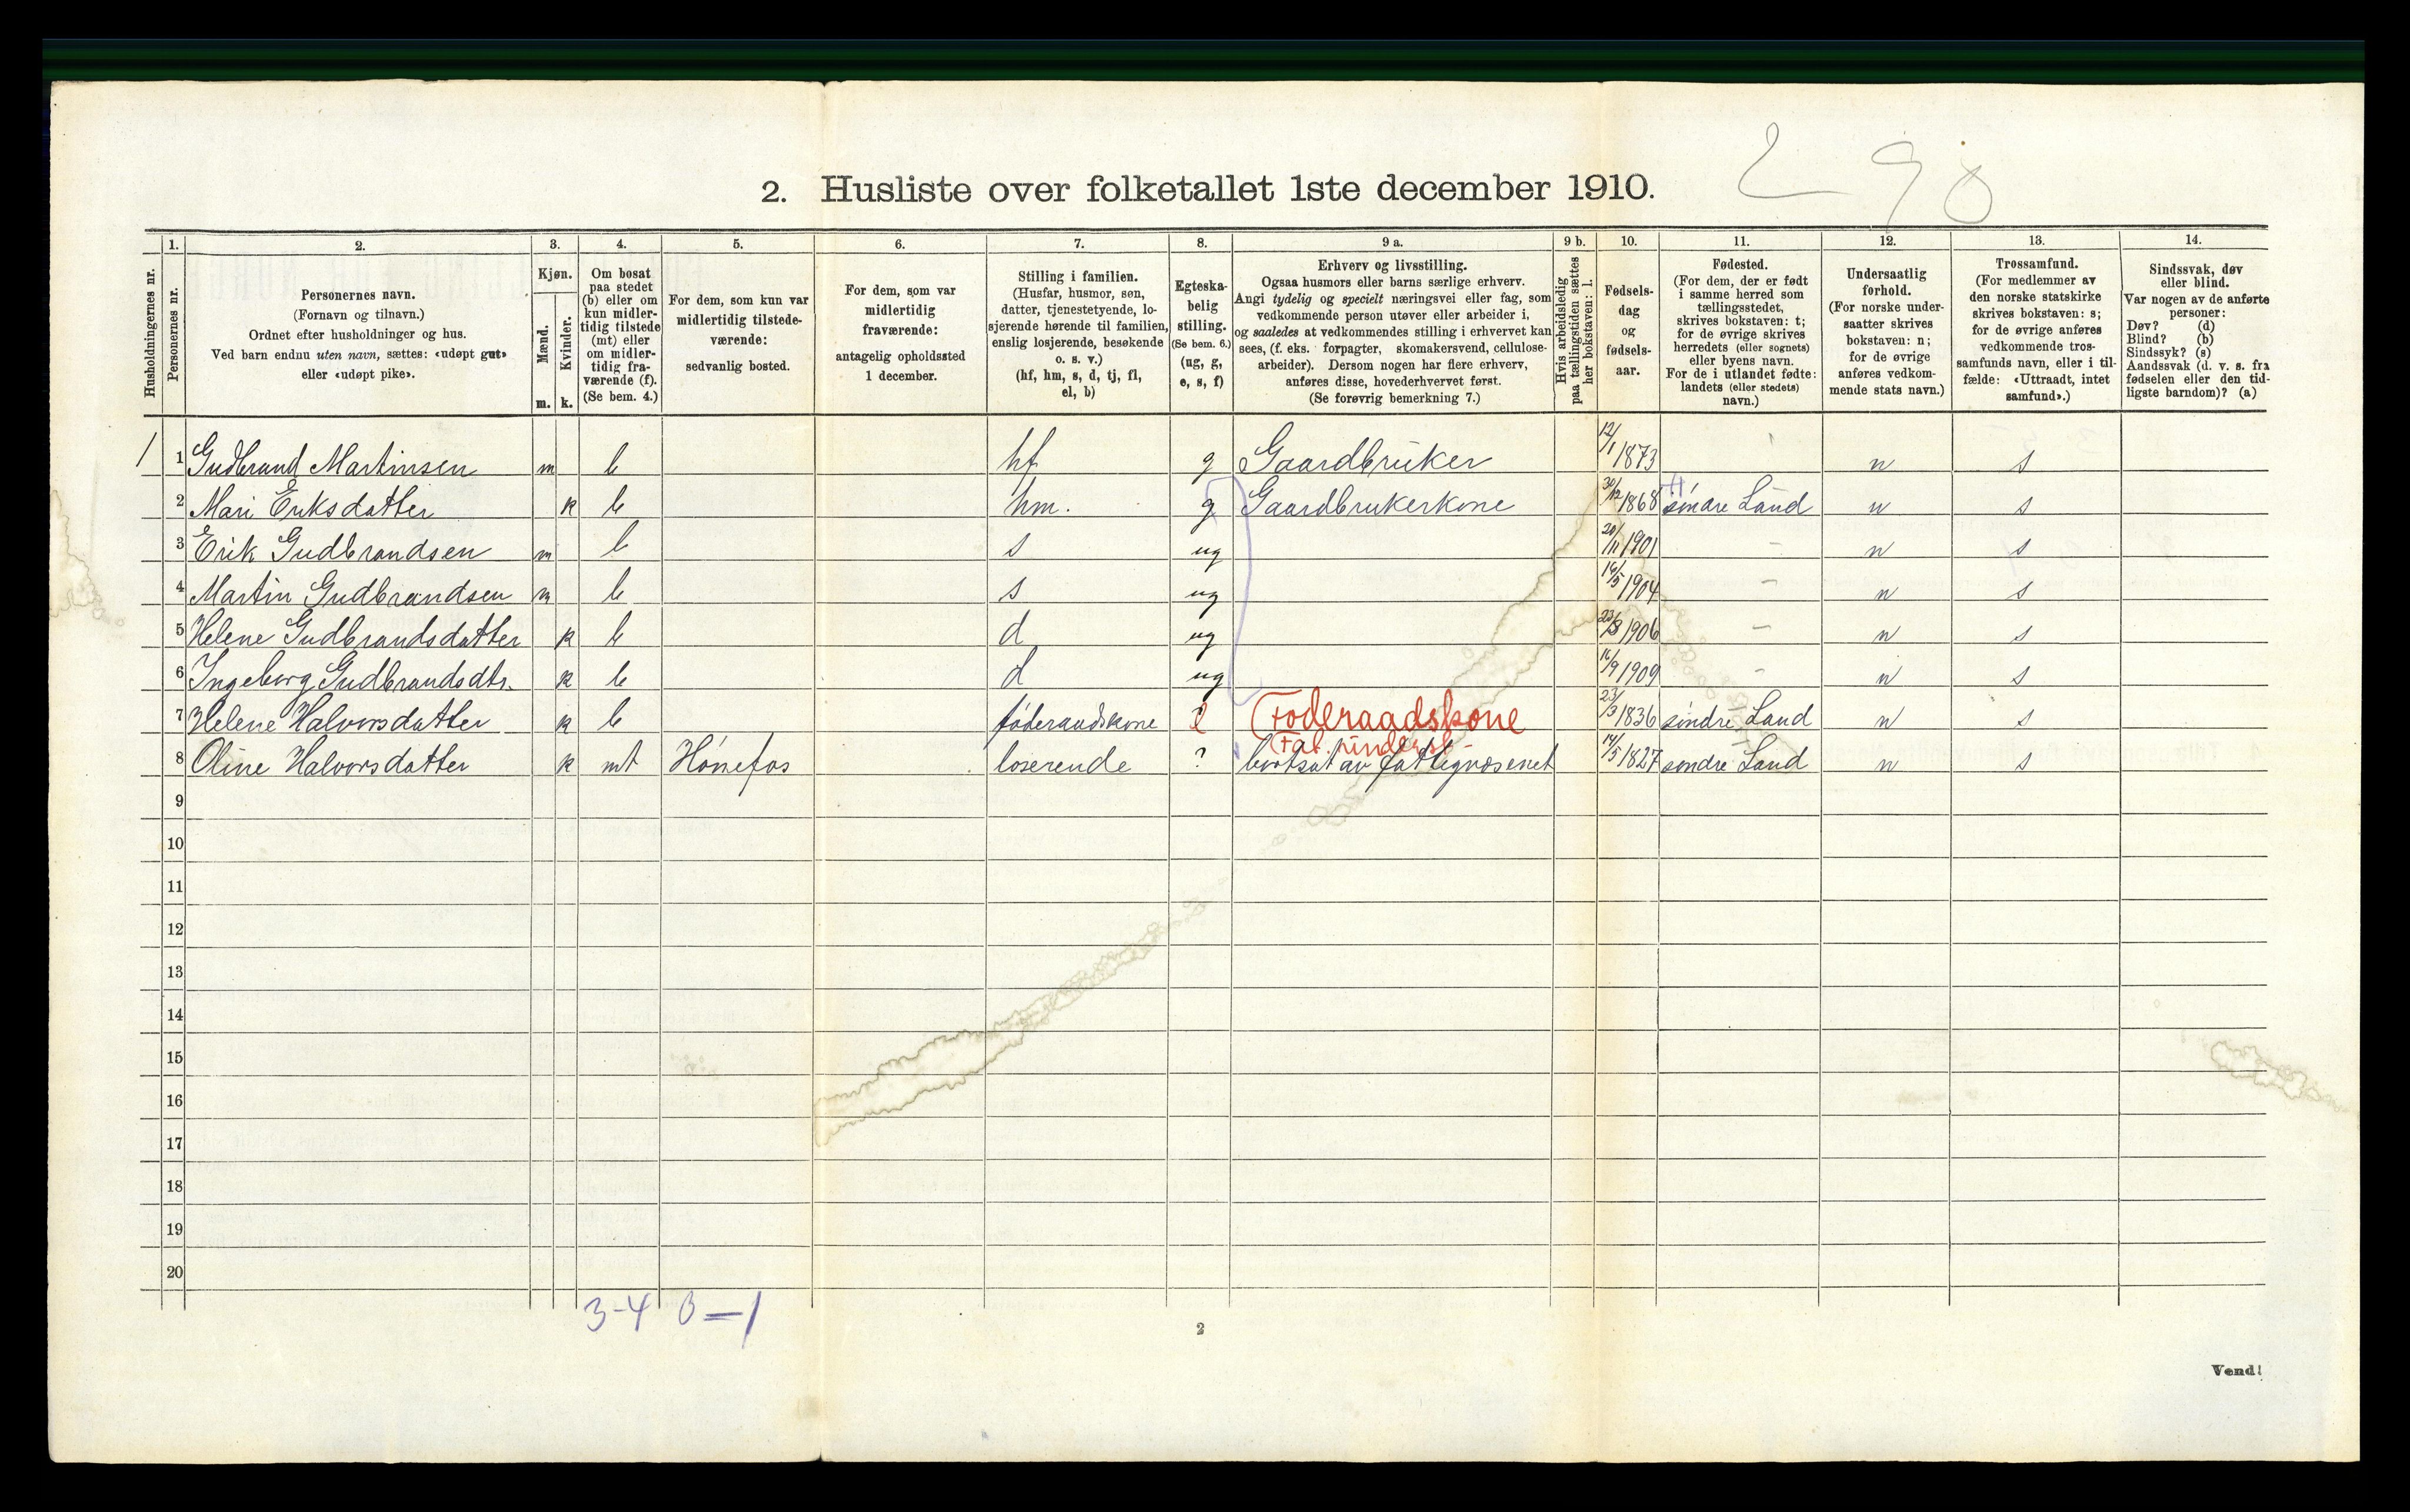 2 90
2. Husliste over folketallet 1ste december 1910.
Husholdningernes nr.
1. Personernes nr.
2. Personernes navn. (Fornavn og tilnavn.) Ordnet efter husholdninger og hus. Ved barn endnu uten navn, sættes: «udøpt gut» eller «udøpt pike».
3. Kjøn. Mænd. m. Kvinder. k.
4. Om bosat paa stedet (b) eller om kun midlertidig tilstede (mt) eller om midlertidig fraværende (f). (Se bem. 4.)
5. For dem, som kun var midlertidig tilstedeværende: sedvanlig bosted.
6. For dem, som var midlertidig fraværende: antagelig opholdssted 1 december.
7. Stilling i familien. (Husfar, husmor, søn, datter, tjenestetyende, losjerende hørende til familien, enslig losjerende, besøkende o. s. v.) (hf, hm, s, d, tj, fl, el, b)
8. Egteskabelig stilling. (Se bem. 6.) (ug, g, e, s, f)
9 a. Erhverv og livsstilling. Ogsaa husmors eller barns særlige erhverv. Angi tydelig og specielt næringsvei eller fag, som vedkommende person utøver eller arbeider i, og saaledes at vedkommendes stilling i erhvervet kan sees, (f. eks. forpagter, skomakersvend, cellulosearbeider). Dersom nogen har flere erhverv, anføres disse, hovederhvervet først. (Se forøvrig bemerkning 7.)
9 b. Hvis arbeidsledig paa tællingstiden sættes her bokstaven: l.
10. Fødselsdag og fødselsaar.
11. Fødested. (For dem, der er født i samme herred som tællingsstedet, skrives bokstaven: t; for de øvrige skrives herredets (eller sognets) eller byens navn. For de i utlandet fødte: landets (eller stedets) navn.)
12. Undersaatlig forhold. (For norske undersaatter skrives bokstaven: n; for de øvrige anføres vedkommende stats navn.)
13. Trossamfund. (For medlemmer av den norske statskirke skrives bokstaven: s; for de øvrige anføres vedkommende trossamfunds navn, eller i tilfælde: «Uttraadt, intet samfund».)
14. Sindssvak, døv eller blind. Var nogen av de anførte personer: Døv? (d) Blind? (b) Sindssyk? (s) Aandssvak (d. v. s. fra fødselen eller den tidligste barndom)? (a)
1 1 Gudbrand Martinsen m b hf g Gaardbruker 12/1 1873 n s
2 Mari Eriksdatter k b hm. g Gaardbrukerkone 30/12 1868 søndre Land n s
3 Erik Gudbrandsen m b s ug 20/11 1901 – n s
4 Martin Gudbrandsen m b s ug 14/5 1904 – n s
5 Helene Gudbrandsdatter k b d ug 23/8 1906 – n s
6 Ingeborg Gudbrandsdtr. k b d ug 16/9 1909 – n s
7 Helene Halvorsdatter k b føderaadskone e Føderaadskone 23/3 1836 søndre Land n s
8 Oline Halvorsdatter k mt Hønefos loserende ? bortsat av fattigvæsenet 14/5 1827 søndre Land n s
9
10
11
12
13
14
15
16
17
18
19
20
3-4 0=1
2
Vend!